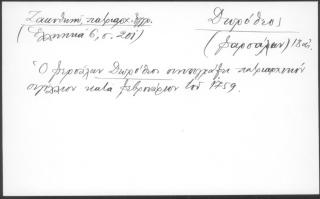 Ζακυθηνοῦ, πατριαρχ. ἔγγρ.
(Ἑλληνικά 6, σ. 201)
Δωρόθεος
(Φαρσάλων) 18 αἰ.
Ὁ Φερσάλων Δωρόθεος συνυπογράφει πατριαρχικόν
σιγίλλιον κατὰ φεβρουάριον τοῦ 1759.